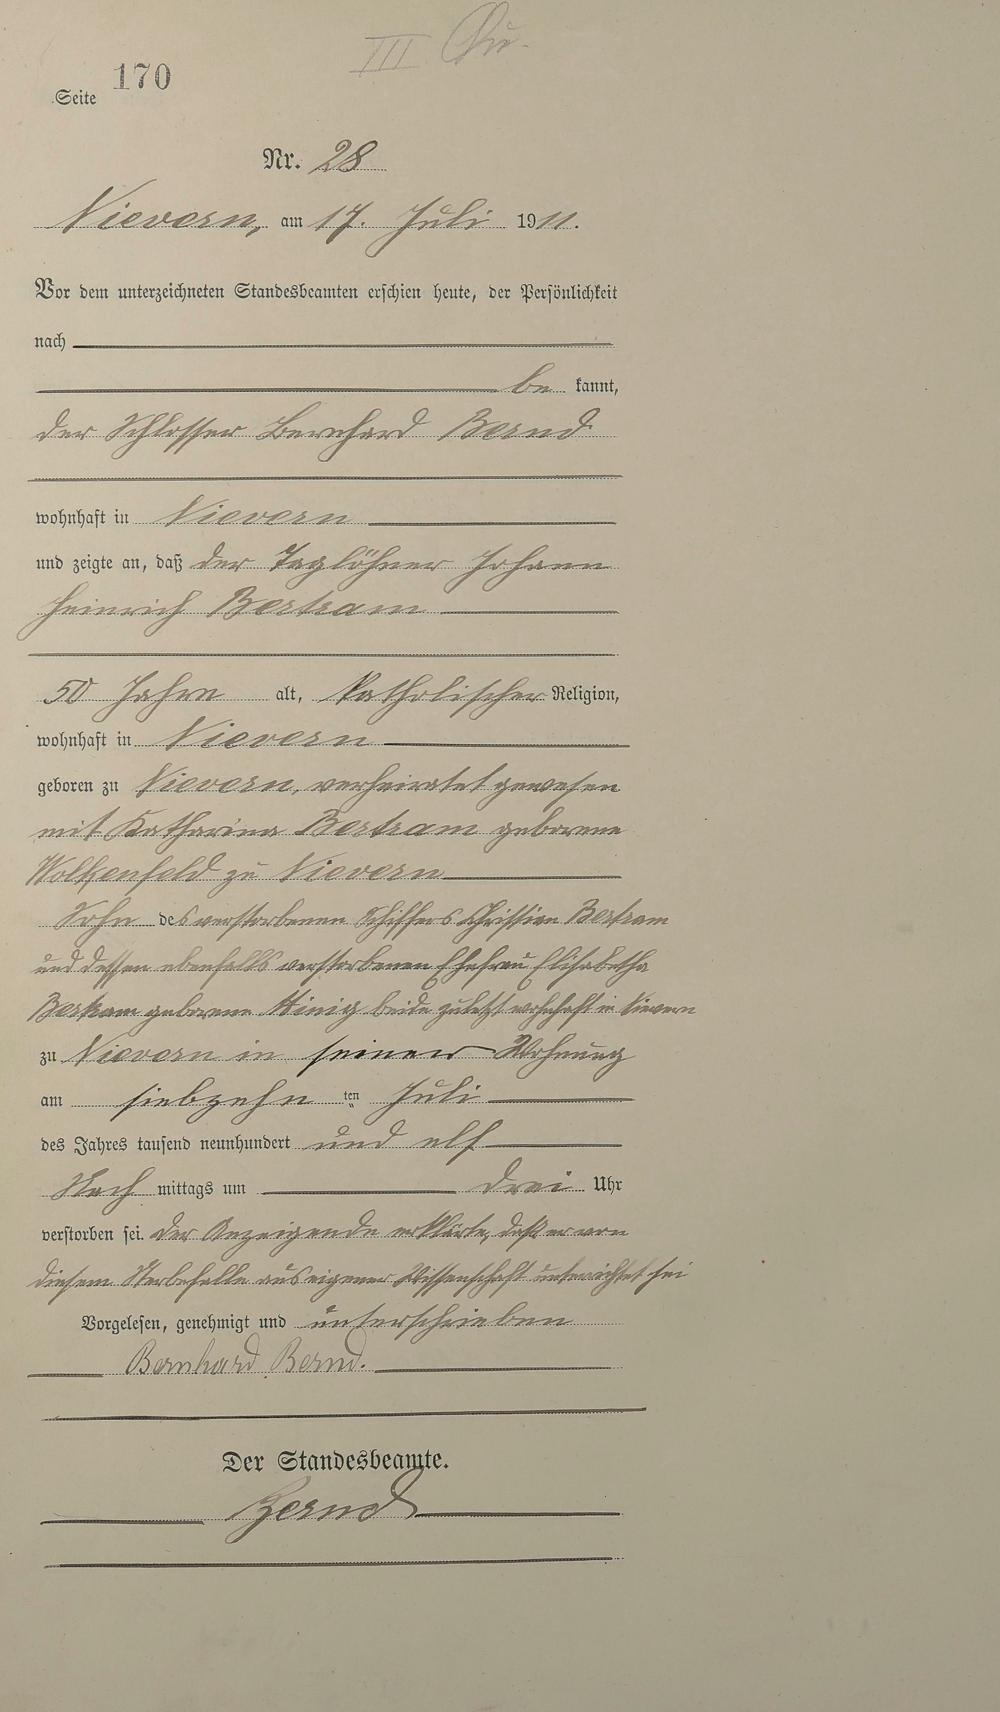 III Qu.
Seite 170
Nr. 28
Nievern, am 17. Juli 1911.
Vor dem unterzeichneten Standesbeamten erschien heute, der Persönlichkeit
nach
be kannt,
der Schlosser Bernhard Bernd
wohnhaft in Nievern
und zeigte an, daß der Taglöhner Johann
Heinrich Bertram
50 Jahre alt, katholischer Religion,
wohnhaft in Nievern
geboren zu Nievern, verheiratet gewesen
mit Katharina Bertram geborene
Wolkenfeld zu Nievern
Sohn des verstorbenen Schiffers Christian Bertram
und dessen ebenfalls verstorbenen Ehefrau Elisabetha
Bertram geborene Hinig beide zuletzt wohnhaft in Nievern
zu Nievern in seiner Wohnung
am siebzehn ten Juli
des Jahres tausend neunhundert und elf
Nach mittags um drei Uhr
verstorben sei. Der Anzeigende erklärte, daß er von
diesem Sterbefalle aus eigener Wissenschaft unterrichtet sei
Vorgelesen, genehmigt und unterschrieben
Bernhard Bernd.
Der Standesbeamte.
Bernd